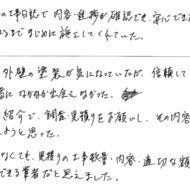 の工事日誌で内容・進捗が確認でき、安心できた
るまでまじめに施工してくれていた。
外壁の塗装が気になっていたが、信頼して
者になかなか出会えなかった。
紹介で、調査・見積りをお願いし、その内容
ようと思った。
なくても、見積りの工事枚数・内容・適切な額
できる業者だと思えました。